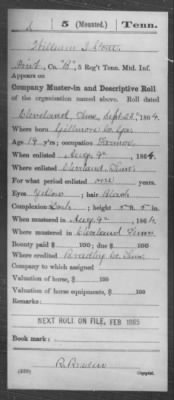 S | 5 (Mounted.) | Tenn.
William J. Stout
Priv't, Co. "B", 5 Reg't Tenn. Mtd. Inf.
Appears on
Company Muster-in and Descriptive Roll
of the organization named above. Roll dated
Cleveland, Tenn, Sept 23, 1864.
Where born Gillmore Co. Ga.
Age 19 y'rs; occupation Farmer
When enlisted Aug. 9, 1864.
Where enlisted Cleveland, Tenn.
For what period enlisted one years.
Eyes Yellow; hair Black
Complexion Dark; height 5 ft. 5 in.
When mustered in Aug. 9, 1864.
Where mustered in Cleveland Tenn
Bounty paid $ 100; due $ 100
Where credited Bradley Co. Tenn.
Company to which assigned
Valuation of horse, $ 100
Valuation of horse equipments, $ 100
Remarks:
NEXT ROLL ON FILE, FEB 1865
Book mark:
(339) Copyist.